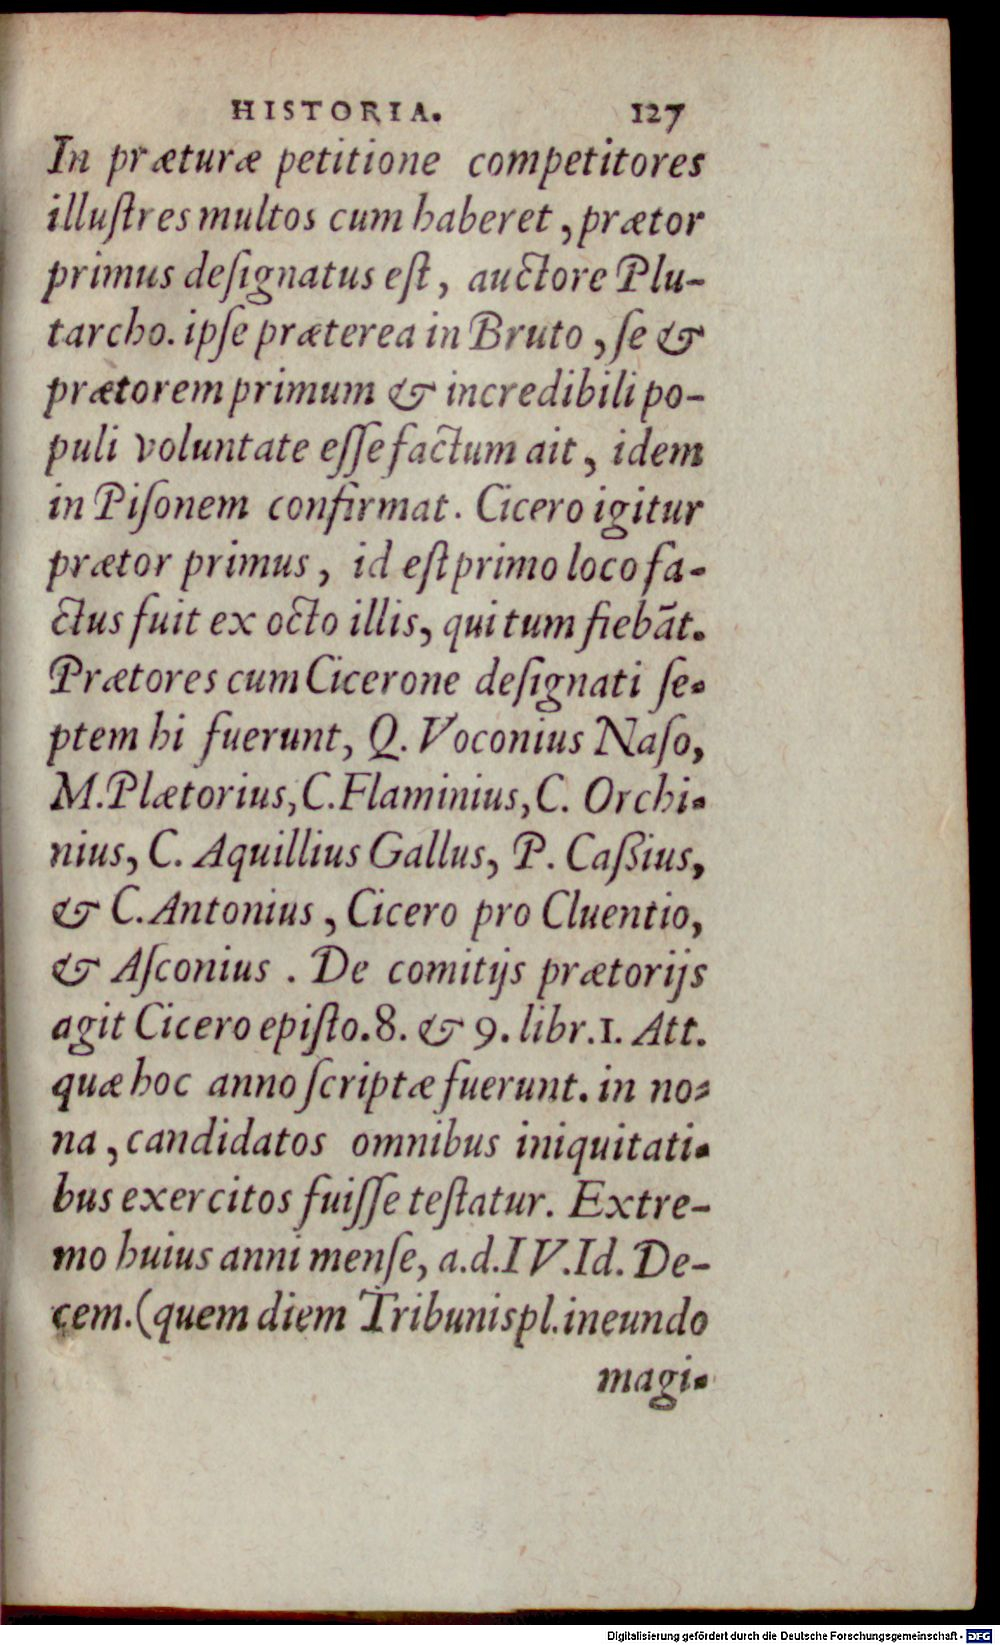 HISTORIA. 127
In præturæ petitione competitores
illuſtres multos cum haberet, prætor
primus deſignatus eſt, auctore Plu-
tarcho. ipſe præterea in Bruto, ſe &
prætorem primum & incredibili po-
puli voluntate eſſe factum ait, idem
in Piſonem confirmat. Cicero igitur
prætor primus, id eſt primo loco fa-
ctus fuit ex octo illis, qui tum fiebāt.
Prætores cum Cicerone deſignati ſe-
ptem hi fuerunt, Q. Voconius Naſo,
M. Plætorius, C. Flaminius, C. Orchi-
nius, C. Aquillius Gallus, P. Caßius,
& C. Antonius, Cicero pro Cluentio,
& Aſconius. De comitijs prætorijs
agit Cicero epiſto. 8. & 9. libr. 1. Att.
quæ hoc anno ſcriptæ fuerunt. in no-
na, candidatos omnibus iniquitati-
bus exercitos fuiſſe teſtatur. Extre-
mo huius anni menſe, a.d. IV. Id. De-
cem. (quem diem Tribunis pl. ineundo
magi-
Digitalisierung gefördert durch die Deutsche Forschungsgemeinschaft - DFG